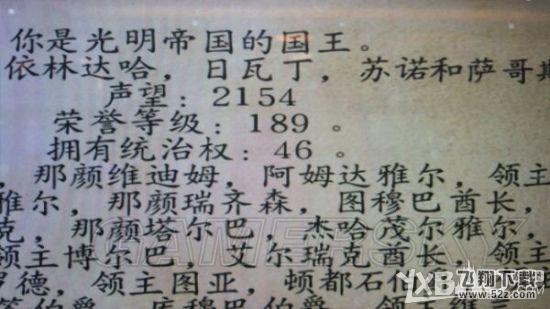 你是光明帝国的国王。
依林达哈，日瓦丁，苏诺和萨哥斯
声望：2154
荣誉等级：189 。
拥有统治权：46 。
，那颜维迪姆，阿姆达雅尔，领主
雅尔，那颜瑞齐森，图穆巴酋长，
克，那颜塔尔巴，杰哈茂尔雅尔，
领主博尔巴，艾尔瑞克酋长，领主
罗德，领主图亚，顿都石伯
GAMERSKY
飞翔下载
www.52z.com